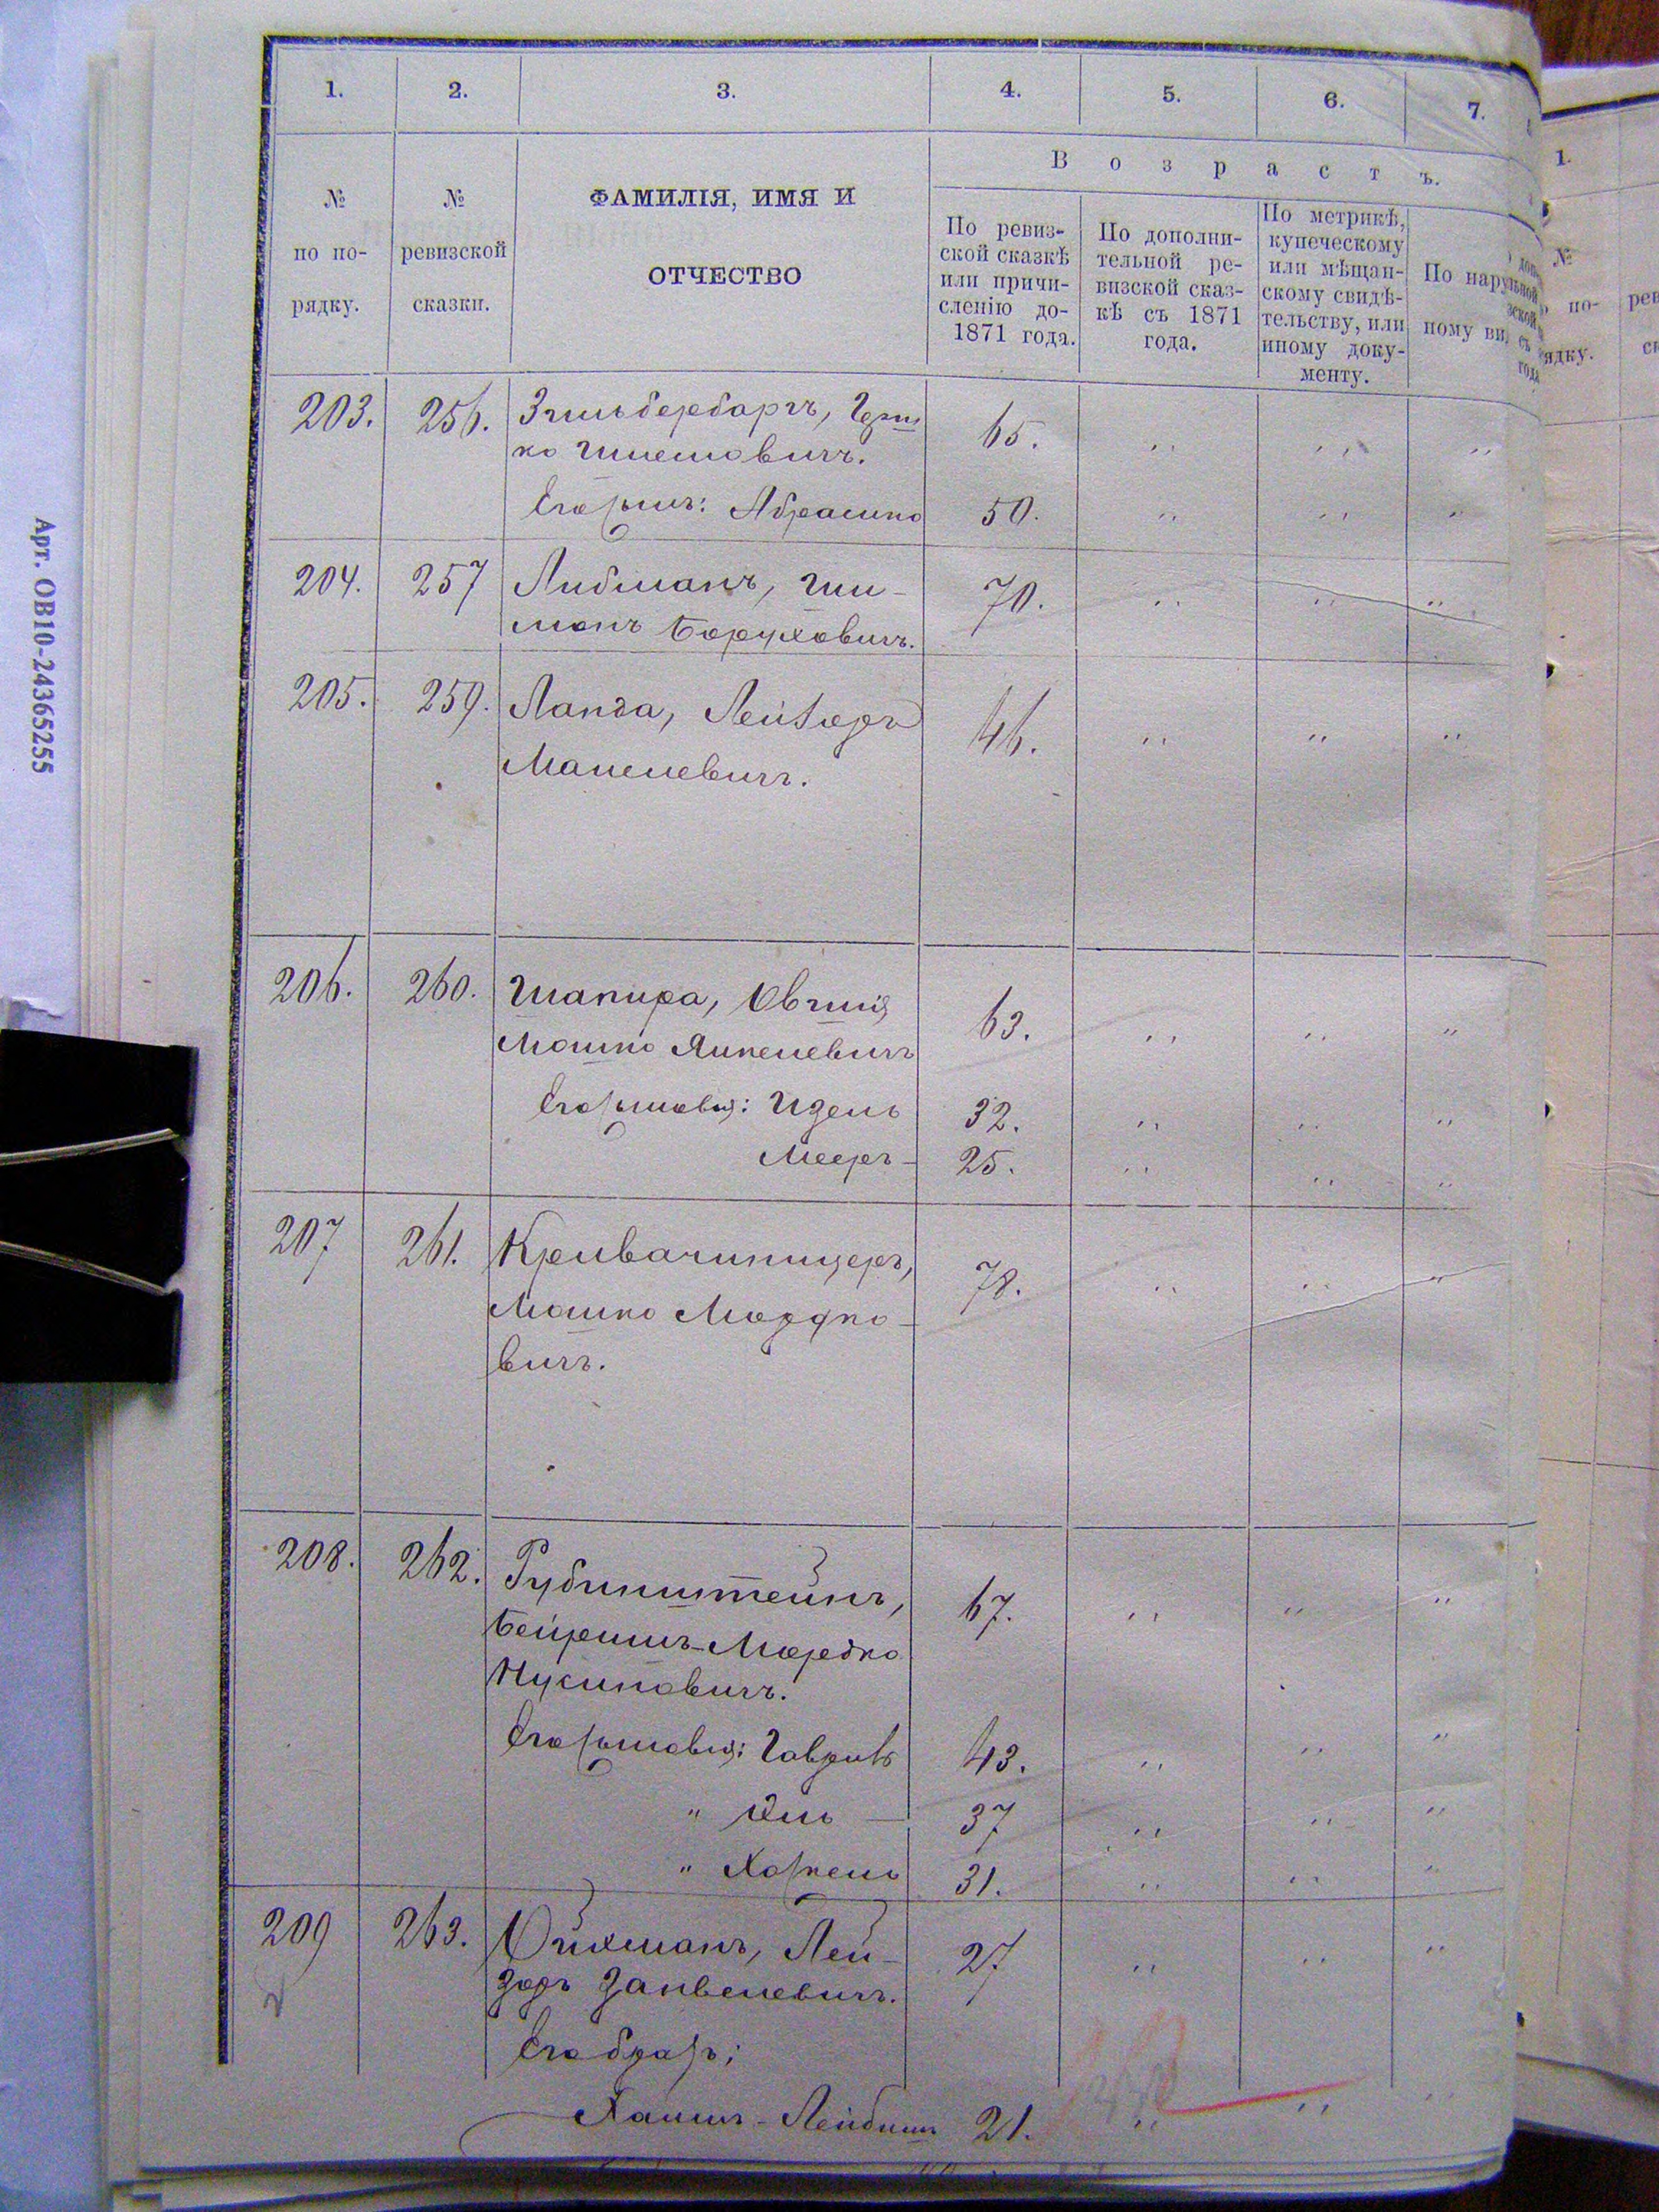 1. 2. 3. 4. 5. 6. 7.
№ по по-рядку.
№ ревизской сказки.
ФАМИЛІЯ, ИМЯ И
ОТЧЕСТВО
Возрастъ.
По ревиз-
ской сказкѣ
или причи-
сленію до-
1871 года.
По дополни-
тельной ре-
визской сказ-
кѣ съ 1871
года.
По метрикѣ,
купеческому
или мѣщан-
скому свидѣ-
тельству, или
иному доку-
менту.
По наруж
ному ви
203. 256. Зильбербаргъ, Герш
ко Шлемовичъ. 65. ,, ,, ,,
Его сынъ: Абрамко 50. ,, ,, ,,
204. 257 Либманъ, Ши-
манъ Боруховичъ. 70. ,, ,, ,,
205. 259. Ланда, Лейзоръ 46. ,, ,, ,,
Манелевичъ.
206. 260. Шапира, Овшія 63. ,, ,, ,,
Мошко Янкелевичъ
Его сыновья: Идель 32. ,, ,, ,,
Мееръ - 25. ,, ,, ,,
207 261. Кривачипицеръ, 78. ,, ,, ,,
Мошко Мордко-
вичъ.
208. 262. Рубинштейнъ, 67. ,, ,, ,,
Бейришъ-Мордко
Нусиновичъ.
Его сыновья: Гаврилъ 43. ,, ,, ,,
" Юль — 37 ,, ,, ,,
" Хаскель 31. ,, ,, ,,
209 263. Ойхманъ, Лей- 27 ,, ,, ,,
зоръ Занвелевичъ.
Его братъ:
Хаимъ-Лейбишъ 21. ,, ,, ,,
Арт. ОВ10-24365255
1.
№
по-
ядку.
рев
ск